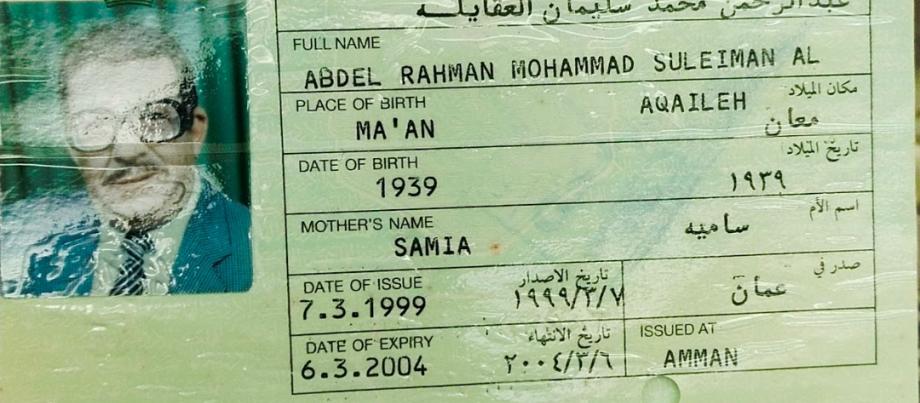 عبدالرحمن محمد سليمان العقايله
FULL NAME
ABDEL RAHMAN MOHAMMAD SULEIMAN AL
AQAILEH
PLACE OF BIRTH مكان الميلاد
MA'AN معان
DATE OF BIRTH تاريخ الميلاد
1939 ١٩٣٩
MOTHER'S NAME اسم الأم
SAMIA ساميه
DATE OF ISSUE تاريخ الاصدار صدر في
7.3.1999 ١٩٩٩/٣/٧ عمان
DATE OF EXPIRY تاريخ الانتهاء ISSUED AT
6.3.2004 ٢٠٠٤/٣/٦ AMMAN